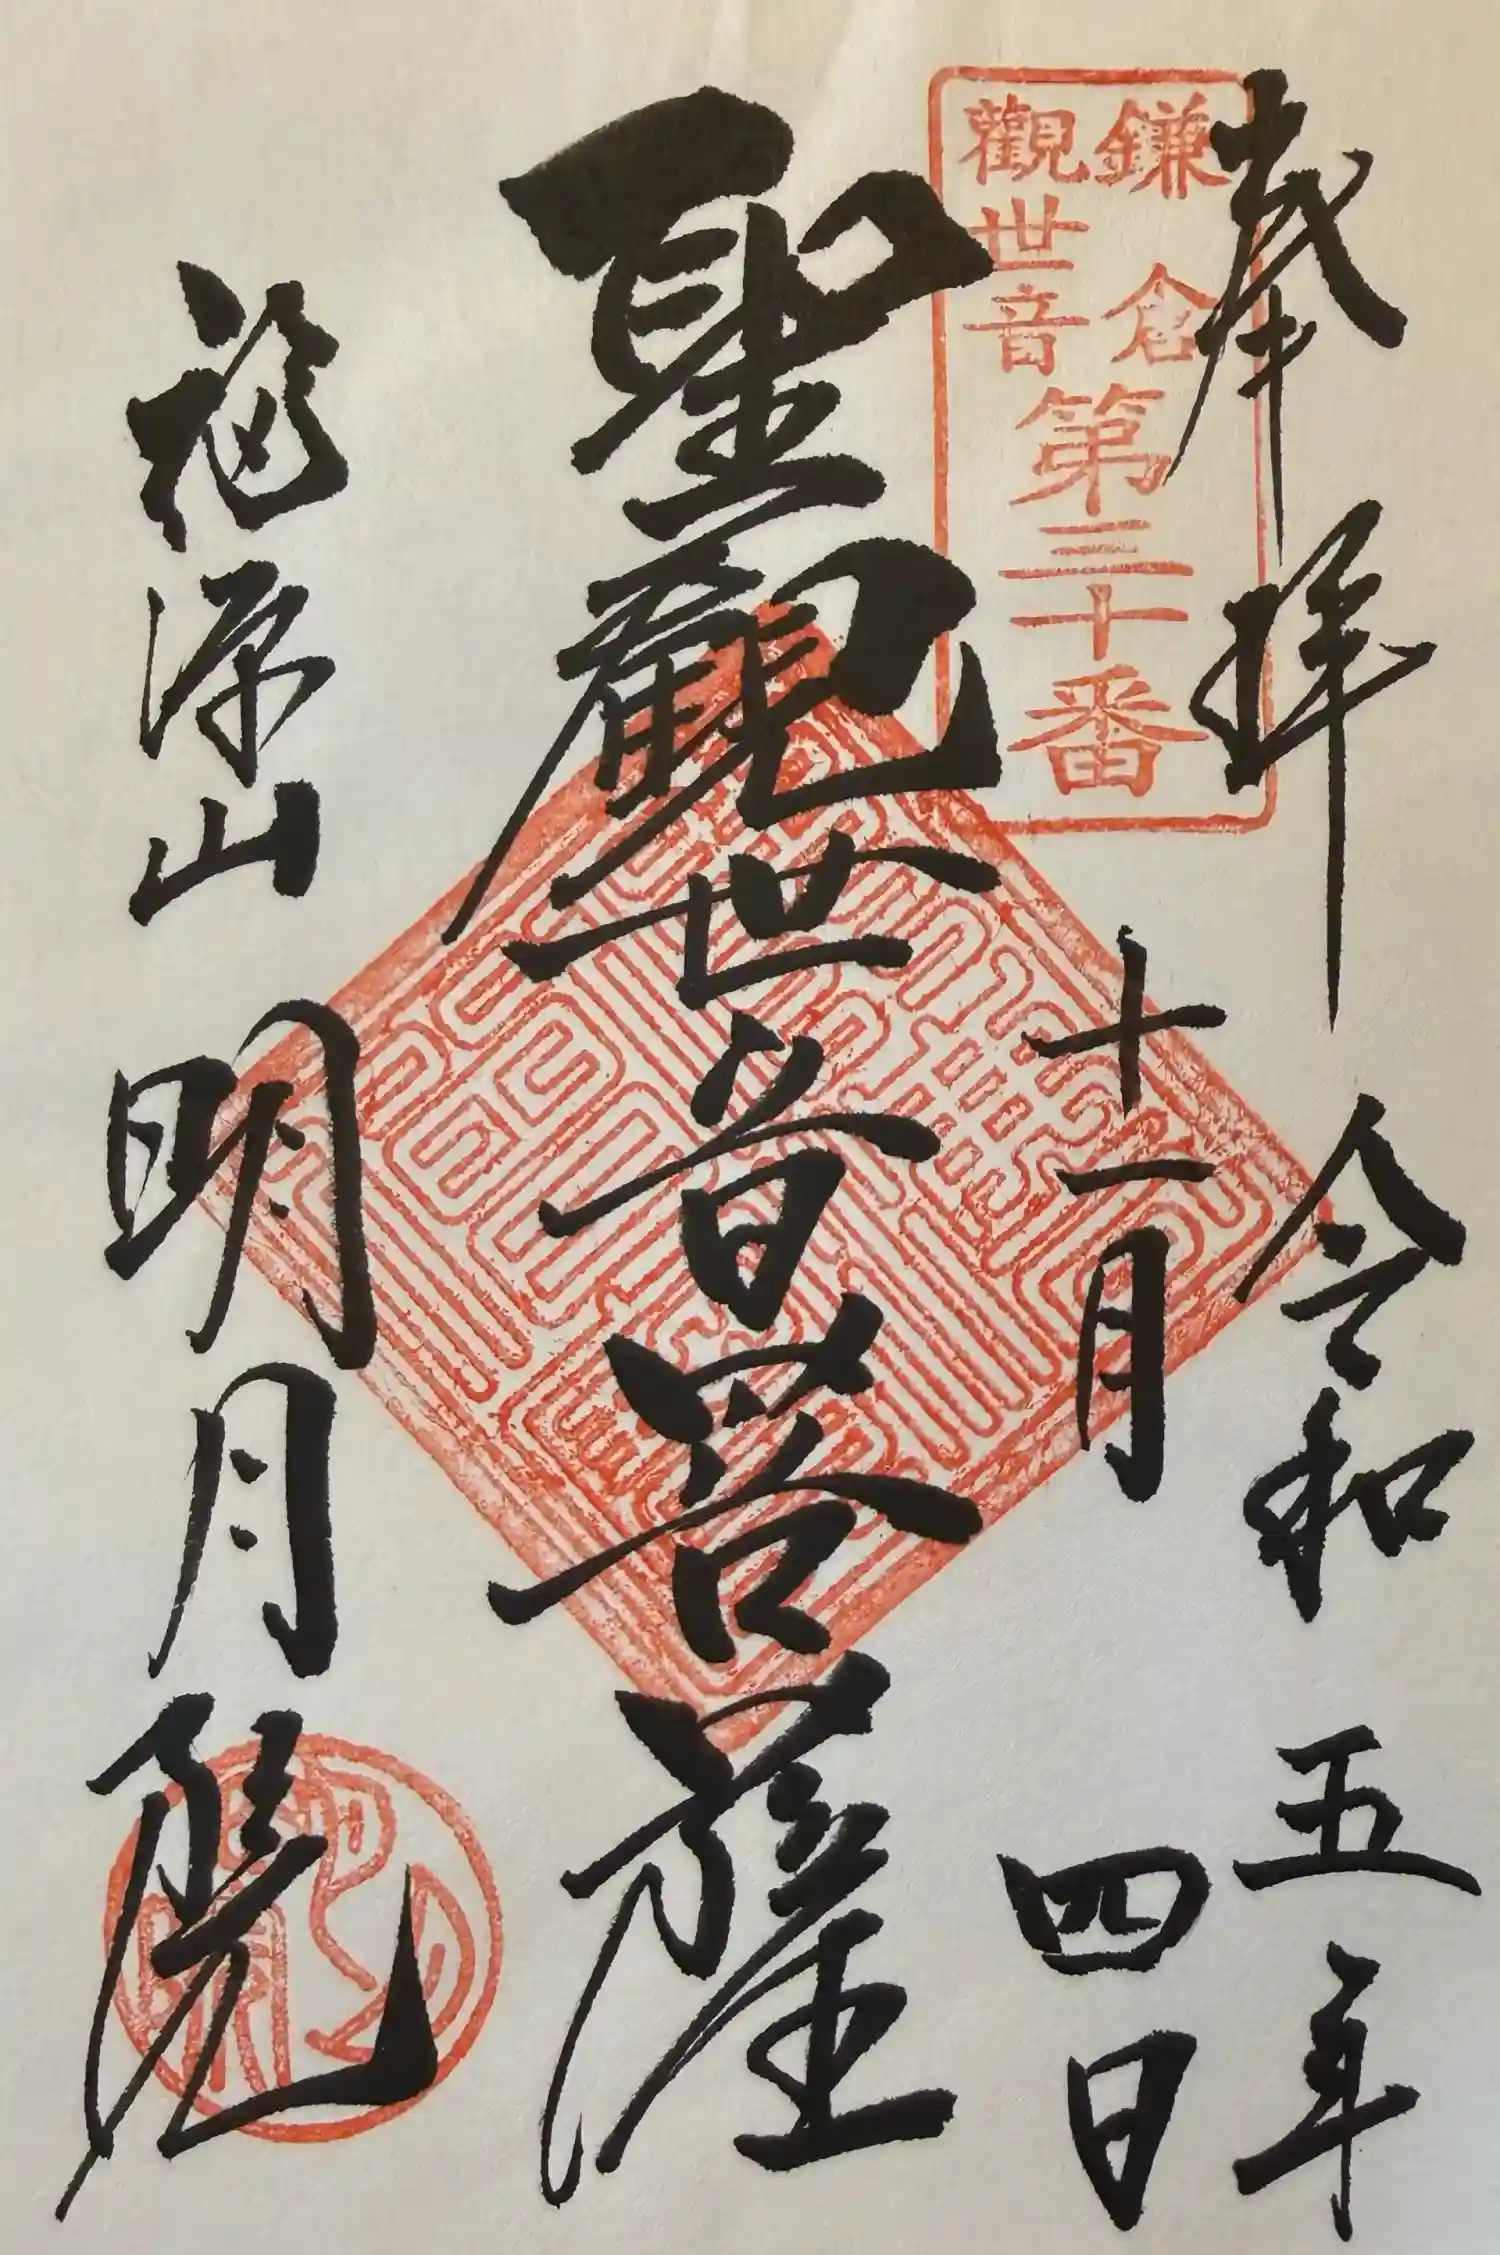 奉拝
令和五年
十一月四日
鎌倉
觀世音
第三十番
聖觀世音菩薩
福源山
明月院